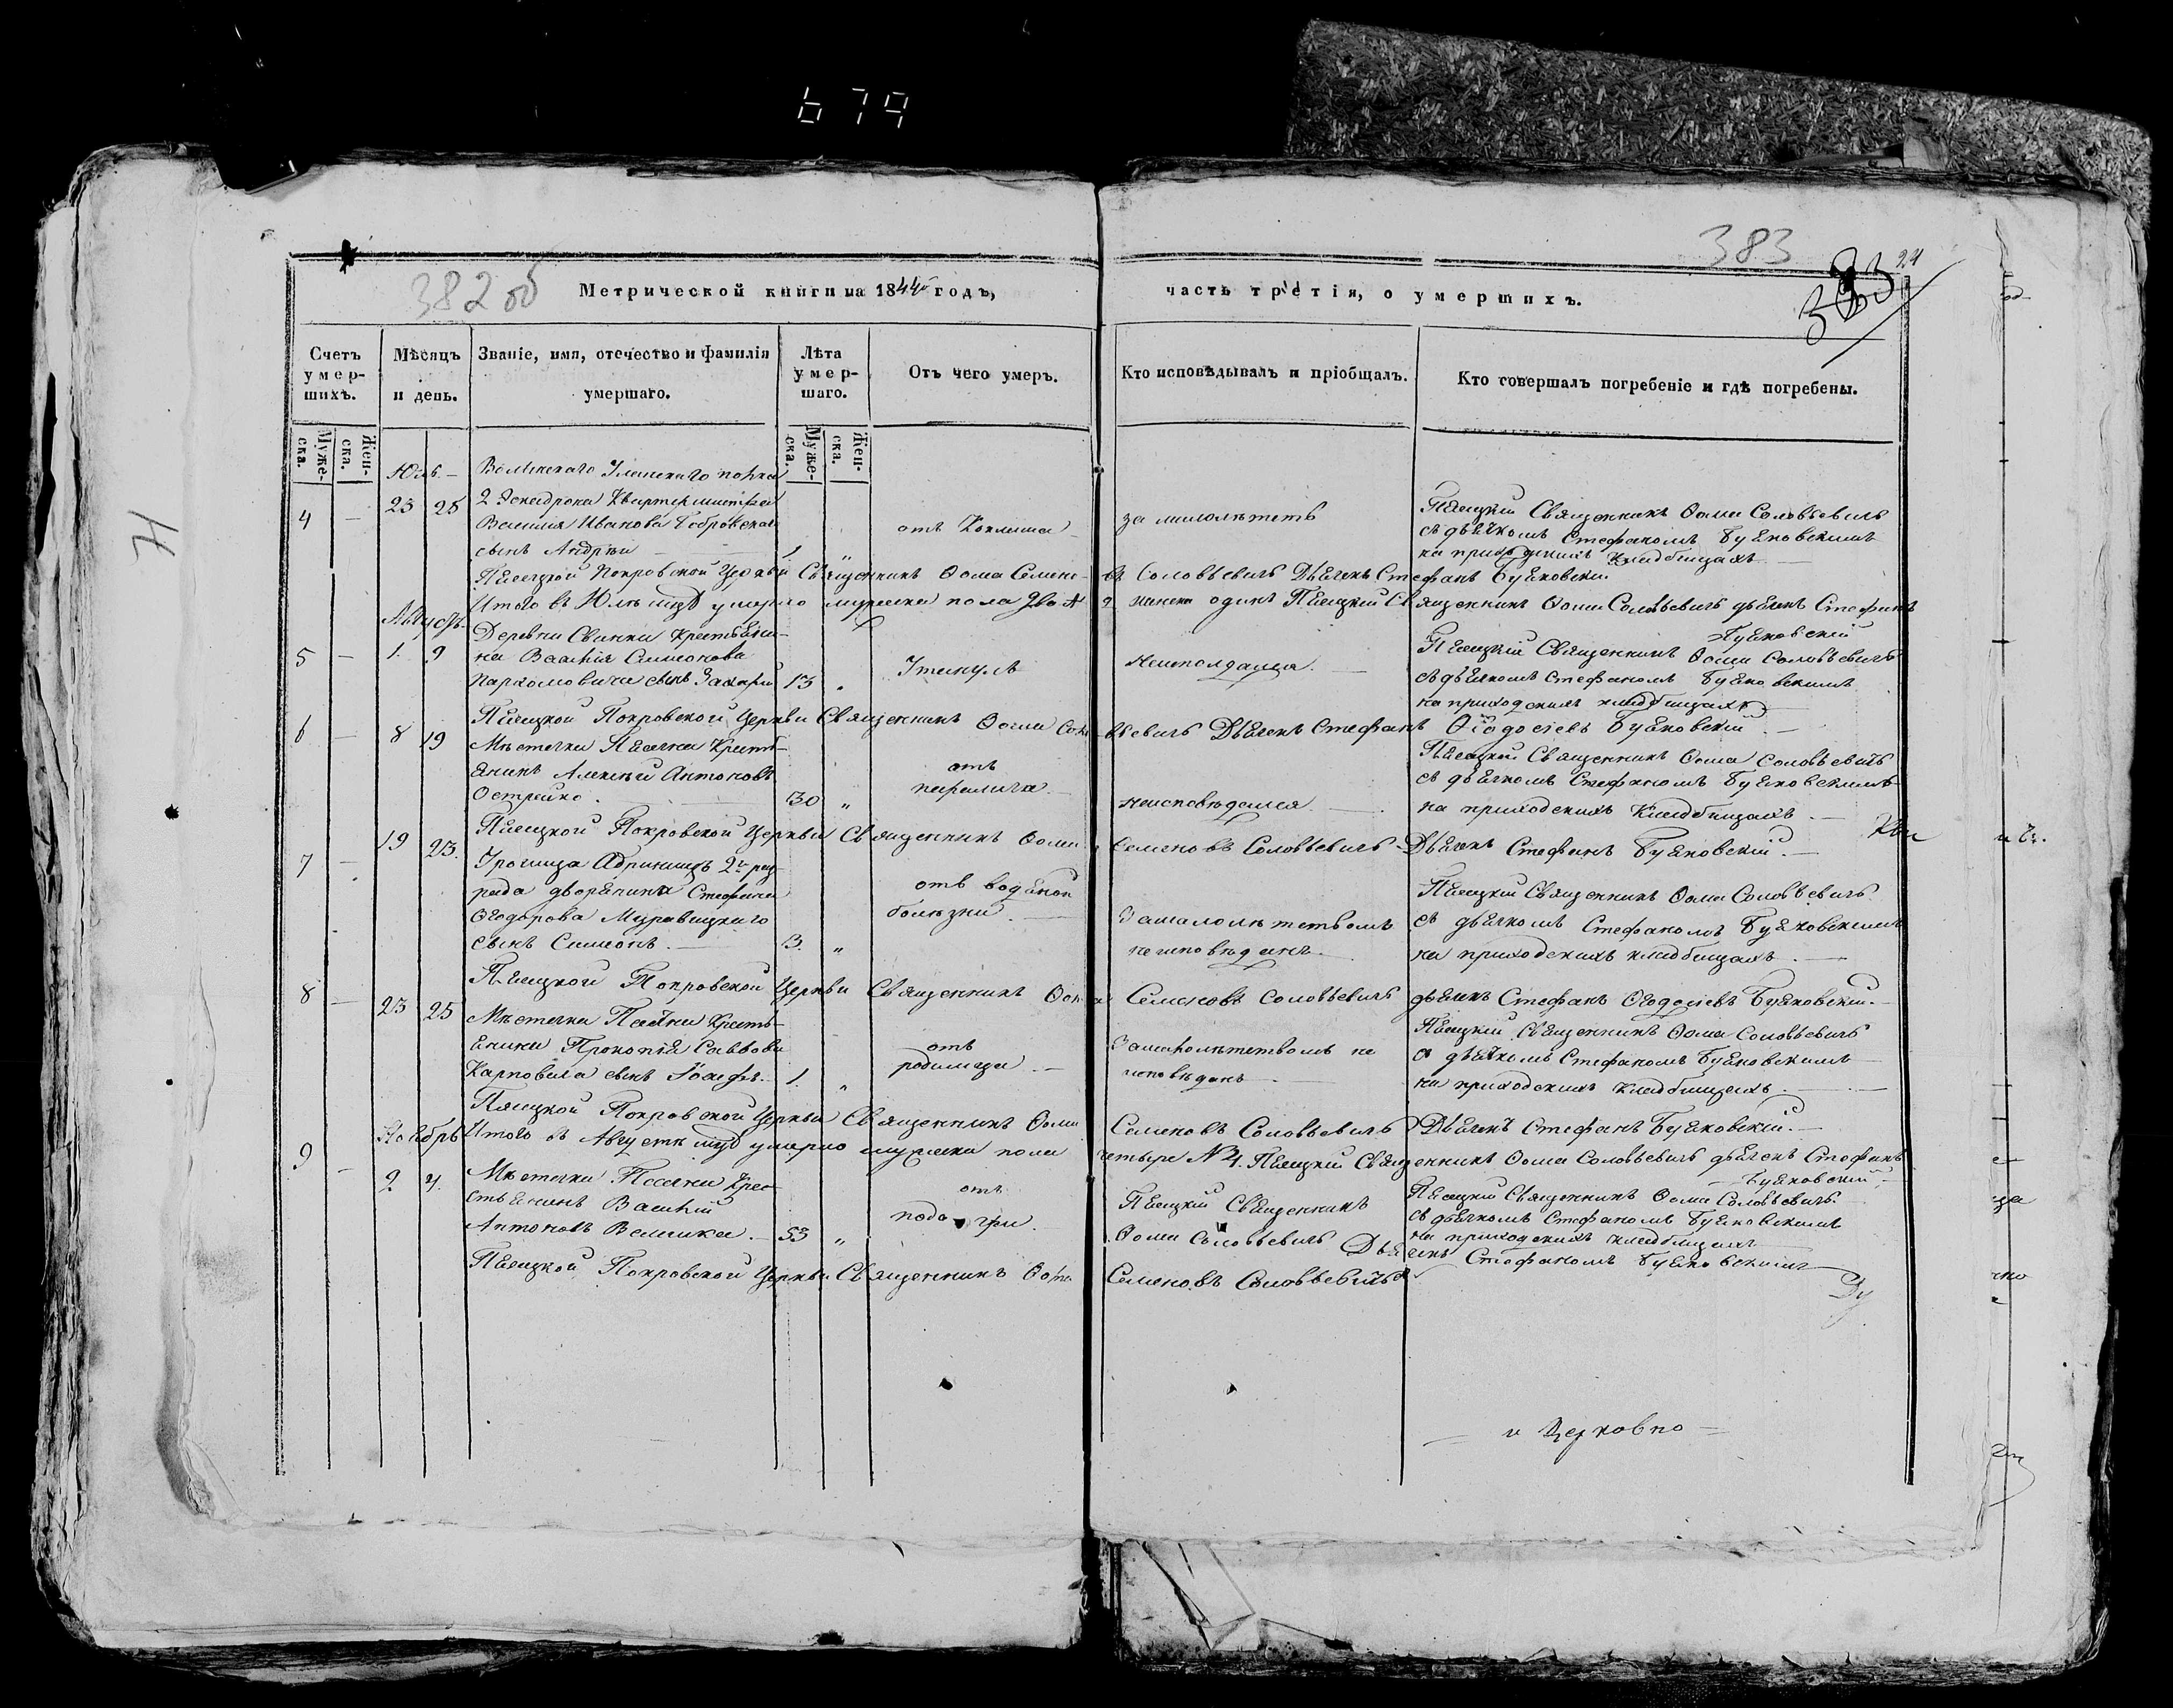 679
383
382 об
Метрической книги на 1844й годъ,
часть третія, о умершихъ.
383
Счетъ умер-шихъ.
Мѣсяцъ и день.
Званіе, имя, отечество и фамилія умершаго.
Лѣта умер-шаго.
Отъ чего умеръ.
Кто исповѣдывалъ и пріобщалъ.
Кто совершалъ погребеніе и гдѣ погребены.
Муже-ска.
Жен-ска.
Муже-ска.
Жен-ска.
Юль
4 — 23 25
Уланскаго полка
2 Эскадрона Квартермистра
Василия Иванова Бобровска
сынъ Андрѣи 1 „
отъ Коклиша
за милолѣтетъ
Пѣсецкий Священникъ Ѳома Соловѣевичъ
съ дьячкомъ Стефаномъ Буяковскимъ
на приходскихъ кладбищахъ
Пѣсецкой Покровской Церкви Священникъ Ѳома Семено-въ Соловѣевичъ Дьячекъ Стефанъ Буяковски
Итого въ Юлѣ мцѣ умерло мужеска пола два 2 женска одинъ Пѣсецкий Священникъ Ѳома Соловѣевичъ дьячекъ Стефанъ
Буяковский
Августъ
5 — 1 9
Деревни Свинки крестьяни-
на Василия Симеонова
Пархомовича сынъ Захарий 13 „
Утинулъ
Пѣсецкий Священникъ Ѳома Соловѣевичъ
съ дьячкомъ Стефаномъ Буяковскимъ
на приходскихъ кладбищахъ
Пѣсецкой Покровской Церкви Священникъ Ѳома Соло-вѣевичъ Дьячекъ Стефанъ Ѳеодосіевъ Буяковскій
6 — 8 19
Мѣстечка Пѣсечна Кресть-
янинъ Алексѣй Антоновъ
Острейко. 30 „
отъ
паралича
неисповѣдался
Пѣсецкой Священникъ Ѳома Соловѣевичъ
съ дьячкомъ Стефаномъ Буяковскимъ
на приходскихъ Кладбищахъ
Пѣсецкой Покровской Церкви Священникъ Ѳома Семеновъ Соловѣевичъ Дьячекъ Стефанъ Буяковскій.
7 — 19 23.
2го раз-
ряда дворянина Стефана
Ѳеодорова Муравицкаго
сынъ Симеонъ. 3. „
отъ водяной
болѣзни.
Замалолѣтетвомъ
неисповѣданъ
Пѣсецкий Священникъ Ѳома Соловѣевичъ
съ дьячкомъ Стефаномъ Буяковскимъ
на приходскихъ кладбищахъ.
Пѣсецкой Покровской Церкви Священникъ Ѳома Семеновъ Соловѣевичъ дьячекъ Стефанъ Ѳеодосіевъ Буяковскій.
8 — 23 25
Мѣстечка Пѣсечна Кресть-
янина Прокопія Саввова
Карповича сынъ Іосифъ. 1. „
отъ
родимца
Замалолѣтетвомъ не
исповѣданъ
Пѣсецкий Священникъ Ѳома Соловѣевичъ
съ дьячкомъ Стефаномъ Буяковскимъ
на приходскихъ кладбищахъ.
Пясецкой Покровской Церкви Священникъ Ѳома Семеновъ Соловѣевичъ Дьячекъ Стефанъ Буяковскій.
Итого въ Августѣ мцѣ умерло мужеска пола четыре №4. Пѣсецкий Священникъ Ѳома Соловѣевичъ дьячекъ Стефанъ
Буяковскій
Ноябрь
9 — 2 4.
Мѣстечка Песечна Кре-
стьянинъ Василий
Антоновъ Велички. 53 „
отъ
подагри.
Пѣсецкий Священникъ
Ѳома Соловѣевичъ
Пѣсецкий Священникъ Ѳома Соловѣевичъ
съ дьячкомъ Стефаномъ Буяковскимъ
на приходскихъ кладбищахъ
Пѣсецкой Покровской Церкви Священникъ Ѳома Семеновъ Соловѣевичъ Дьячекъ Стефаномъ Буяковскимъ
и Церковно